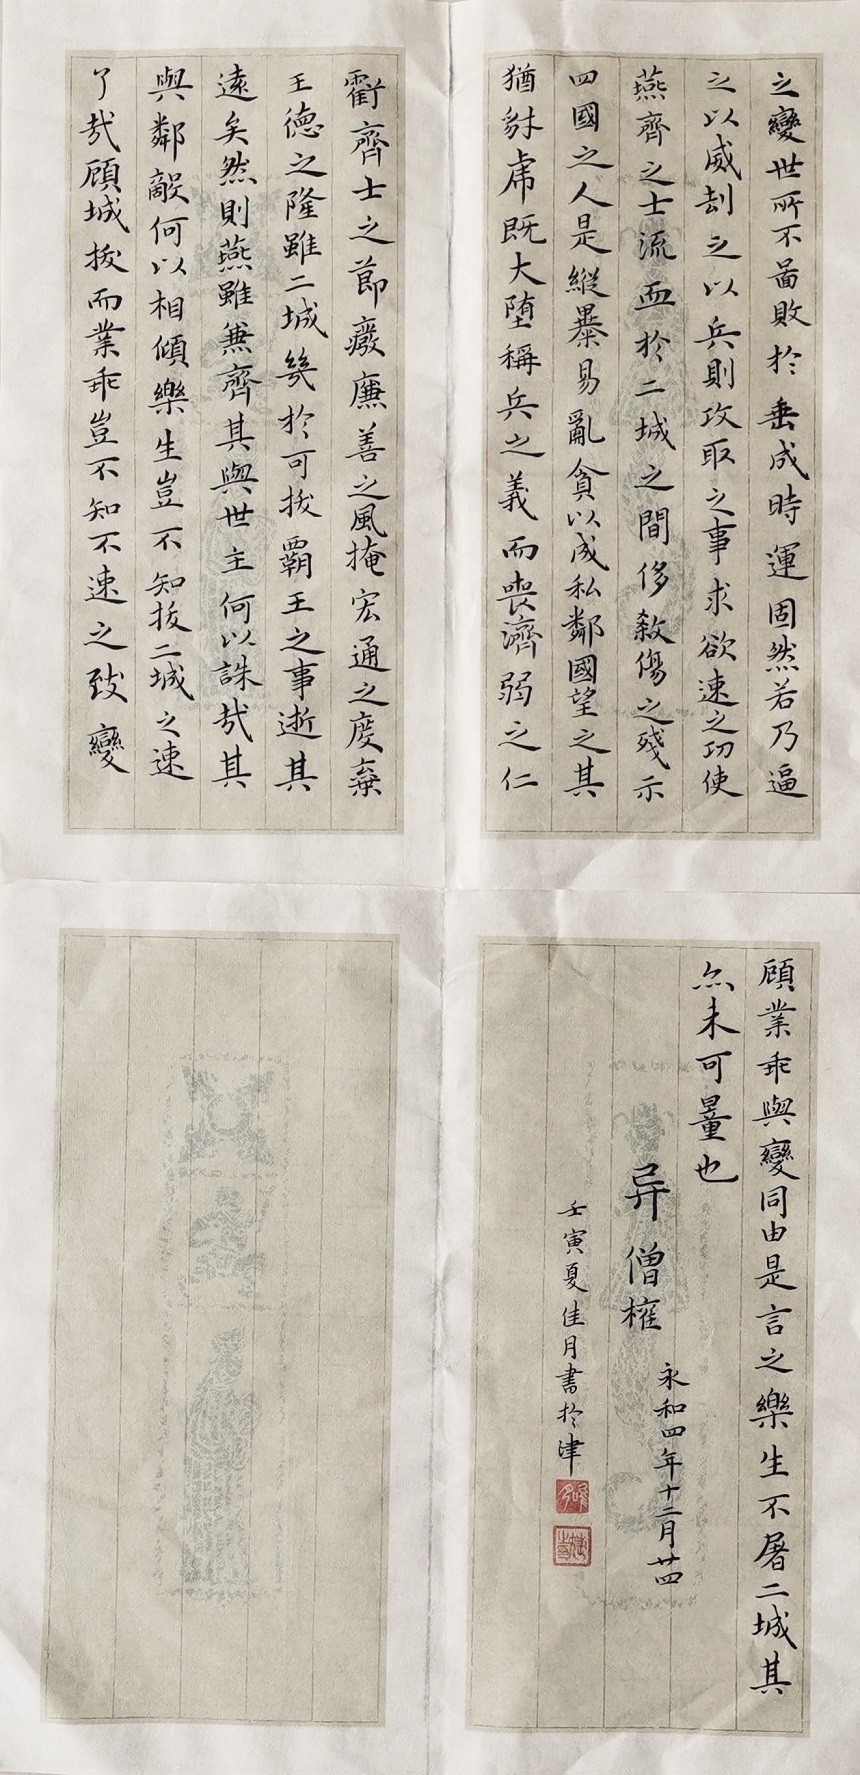 之變世所不啚敗於垂成時運固然若乃逼
之以威刼之以兵則攻取之事求欲速之功使
燕齊之士流血於二城之間侈殺傷之殘示
四國之人是縱暴易亂貪以成私鄰國望之其
猶豺虎既大堕稱兵之義而喪濟弱之仁
虧齊士之節癈廉善之風掩宏通之度棄
王德之隆雖二城幾於可拔霸王之事逝其
遠矣然則燕雖兼齊其與世主何以誅哉其
與鄰敵何以相傾樂生豈不知拔二城之速
了哉顧城拔而業乖豈不知不速之致變
顧業乖與變同由是言之樂生不屠二城其
亦未可量也
异僧權
永和四年十二月廿四
壬寅夏佳月書於津